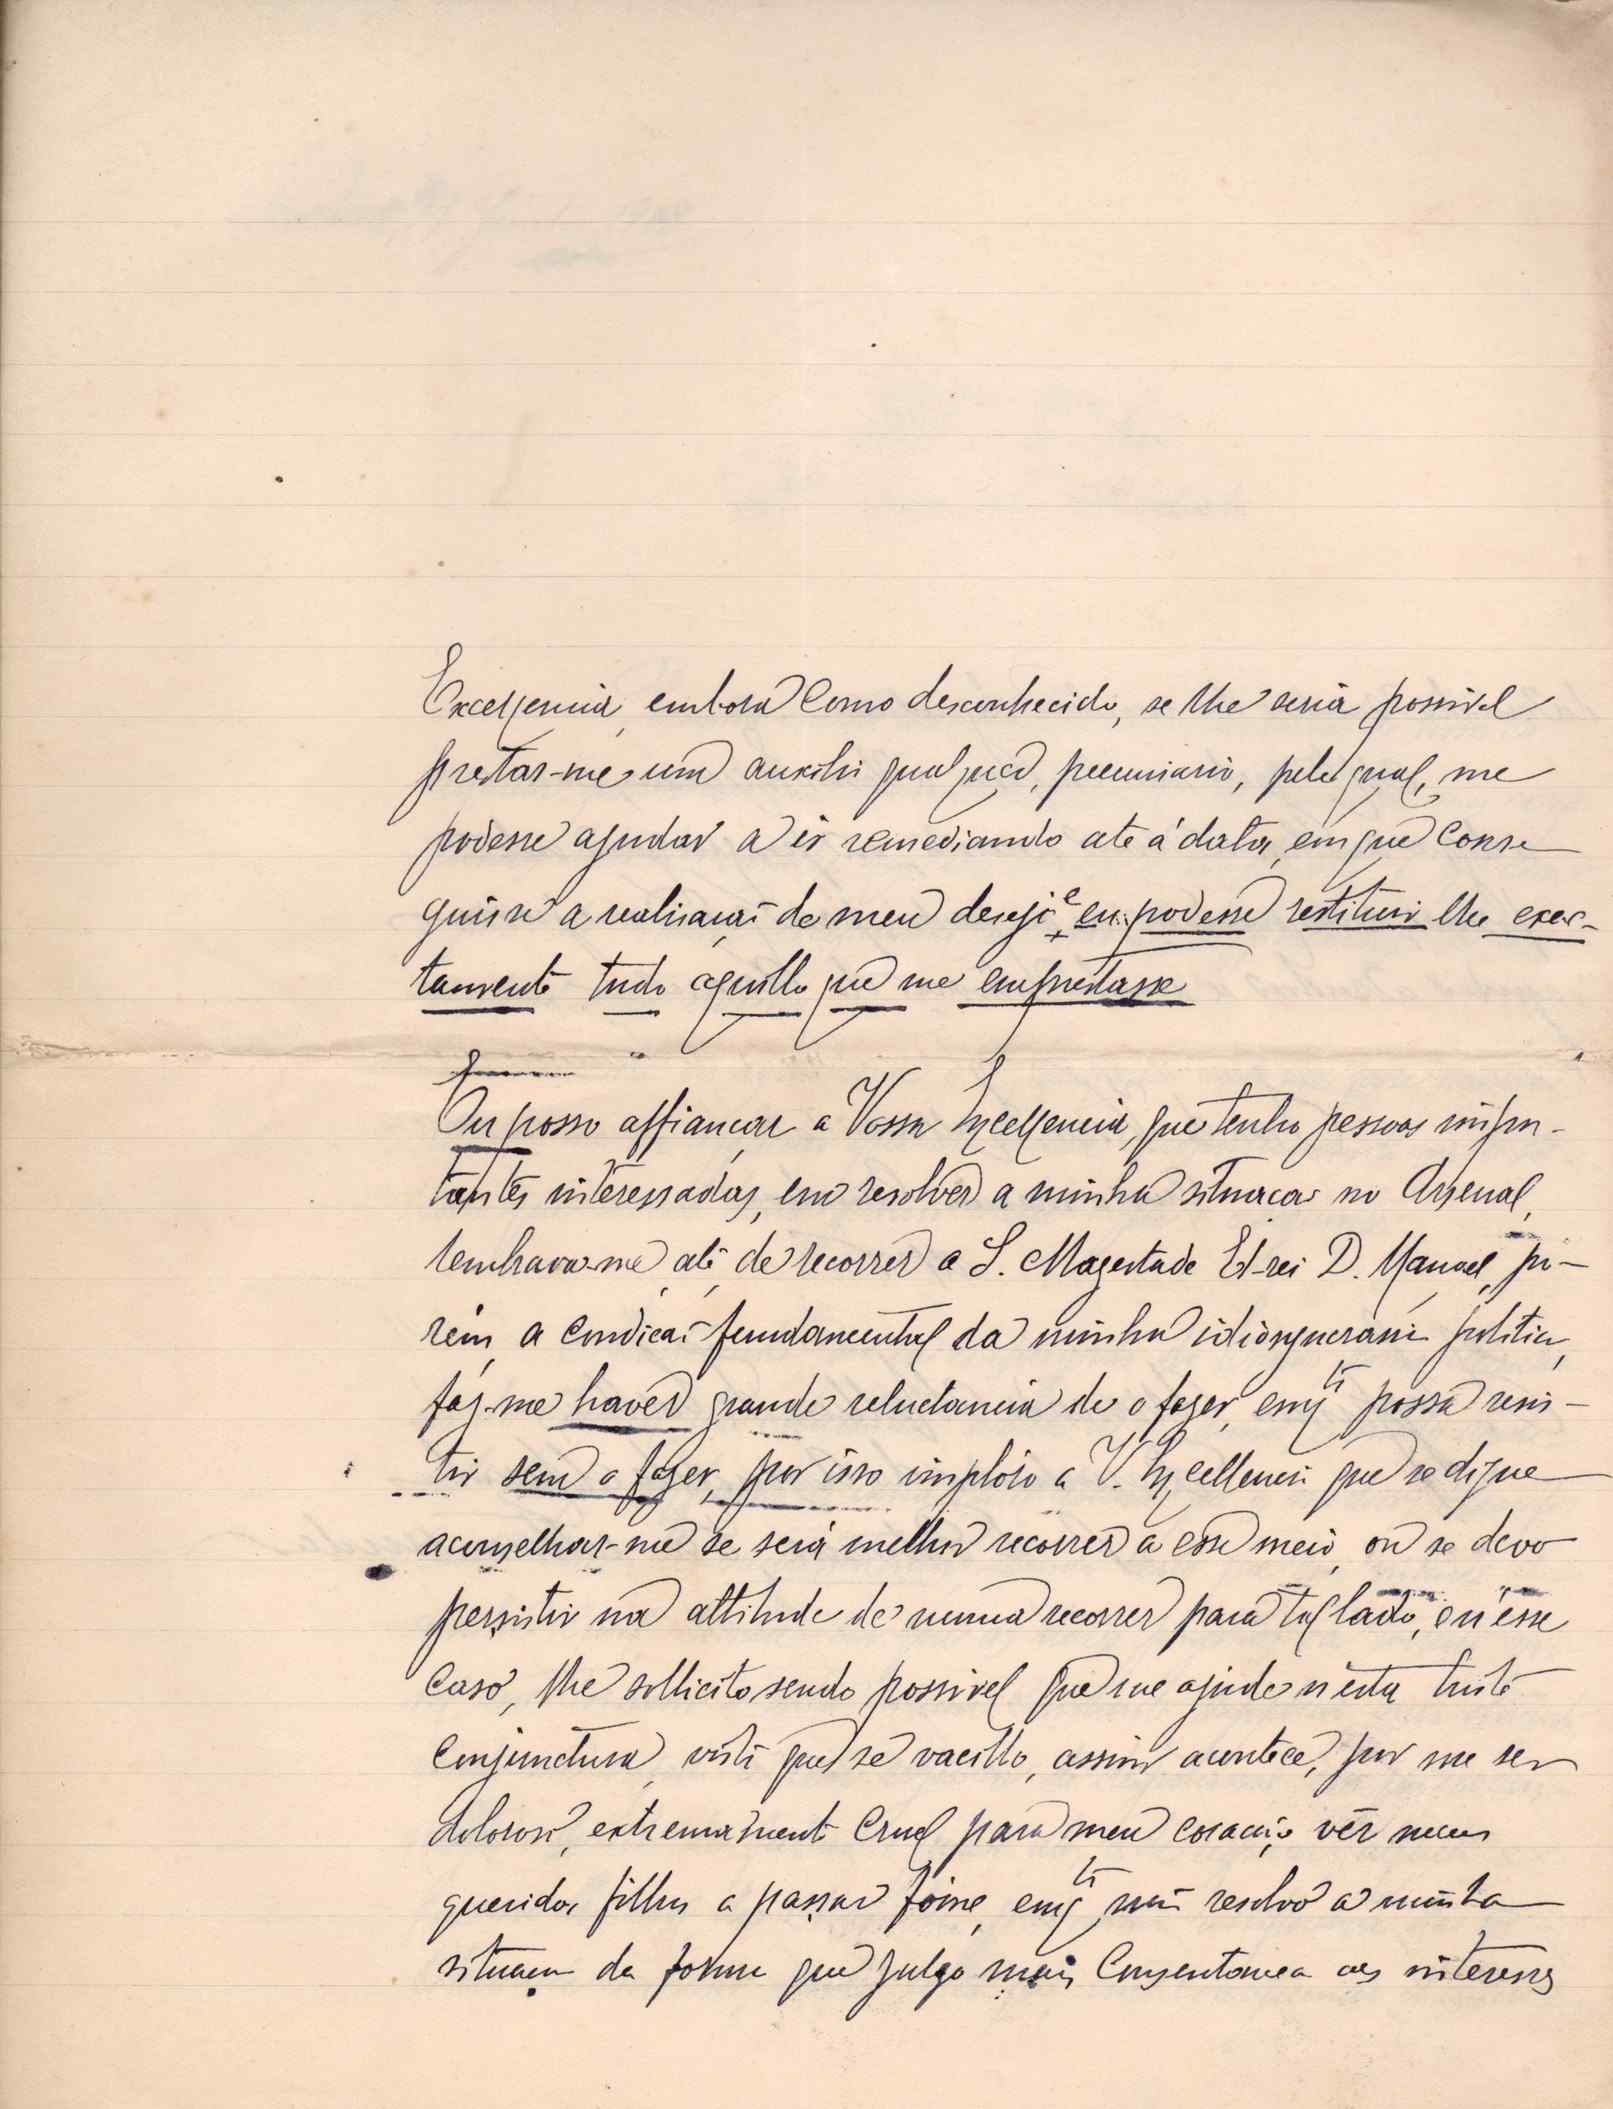 Excellencia, embora como desconhecido, se lhe seria possivel
prestar-me um auxilio qualquer, pecuniario, pelo qual, me
podesse ajudar a ir remediando até á data, em que conse
guisse a realisação do meu desejo e eu podesse restituir lhe exac-
tamente tudo aquillo que me emprestasse
Eu posso affiançar a Vossa Excellencia, que tenho pessoas impor-
tantes interessadas, em resolver a minha situação no Arsenal,
lembrava-me até de recorrer a S. Magestade El-rei D. Manoel, po-
rém, a condicaõ fundamental da minha idiosyncrasia politica,
faz-me haver grande reluctancia de o fazer, emq.to possa resis-
tir sem o fazer, por isso implóro a V. Excellencia que se digne
aconselhar-me se será melhor recorrer a esse meio, ou se devo
persistir na attitude de nunca recorrer para tal lado, e n'esse
caso, lhe sollicito sendo possivel que me ajude n'esta triste
conjunctura, visto que se vacillo, assim acontece, por me ser
doloroso, extremamente cruel para meu coração vêr meus
queridos filhos a passar fome, emq.to não resolvo a minha
situação da forma que julgo mais consentanea aos interesses